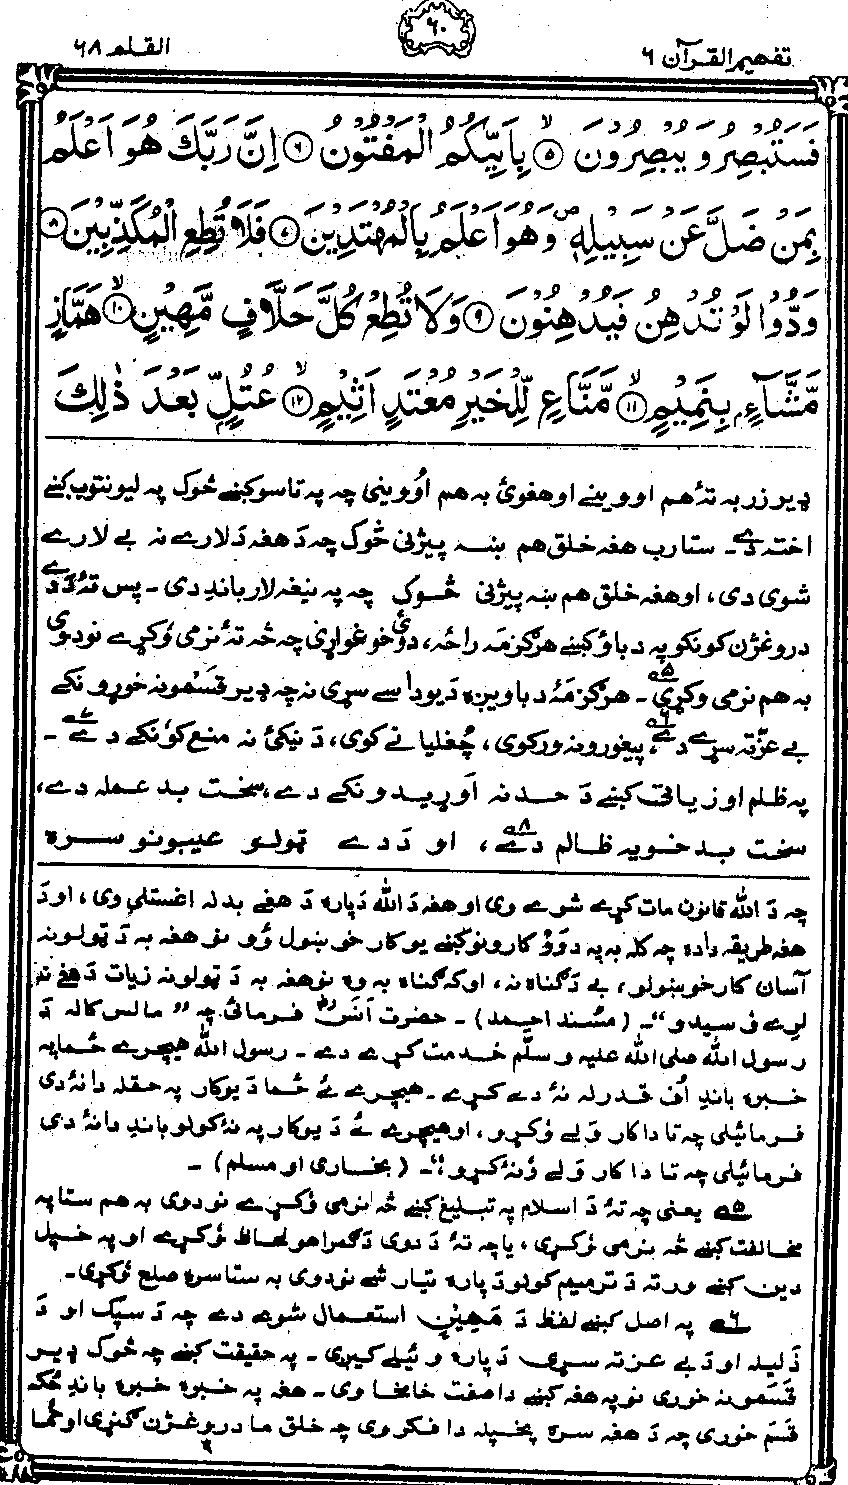 تفهيم القرآن ٦
٦٠
القلم ٦٨
فَسَتُبْصِرُ وَيُبْصِرُونَ ﴿۵﴾ بِاَيِّىكُمُ الْمَفْتُوْنُ ﴿۶﴾ اِنَّ رَبَّكَ هُوَ اَعْلَمُ
بِمَنْ ضَلَّ عَنْ سَبِيْلِهٖ ۖ وَهُوَ اَعْلَمُ بِالْمُهْتَدِيْنَ ﴿۷﴾ فَلَا تُطِعِ الْمُكَذِّبِيْنَ ﴿۸﴾
وَدُّوْا لَوْ تُدْهِنُ فَيُدْهِنُوْنَ ﴿۹﴾ وَلَا تُطِعْ كُلَّ حَلَّافٍ مَّهِيْنٍ ﴿۱۰﴾ هَمَّازٍ
مَّشَّآءٍ بِنَمِيْمٍ ﴿۱۱﴾ مَّنَّاعٍ لِّلْخَيْرِ مُعْتَدٍ اَثِيْمٍ ﴿۱۲﴾ عُتُلٍّۭ بَعْدَ ذٰلِكَ
ډير زر به تۀ هم او وينے او هغوئ به هم اُووينى چه په تاسو كښے څوک په ليونتوب كښے
اخته دے۔ ستا رب هغه خلق هم ښه پيژنى څوک چه دَ هغه دَ لارے نه بے لارے
شوى دى، او هغه خلق هم ښه پيژنى څوک چه په نيغه لار باندِ دى۔ پس تۀ دَ دے
دروغژن كونكو په دباؤ كښے هرګز مه راځه، دوئ خو غواړى چه څه تۀ نرمى وُكړے نو دوى
به هم نرمى وكړى۵۔ هرګز مۀ دباويږه دَ يو داسے سړى نه چه ډير قسمونه خوړونكے
بے عزّته سړے دے۶، پيغورونه وركوى، چُغليانے كوى، دَ نيكئ نه منع كوُنكے دے۷۔
په ظلم او زياتى كښے دَ حد نه اَوړيدونكے دے، سخت بد عمله دے،
سخت بد خويه ظالم دے۸، او دَ دے ټولو عيبونو سره
چه دَ الله قانون مات كړے شوے وى او هغه دَ الله دَپاره دَ هغے بدله اغستلى وى، او دَ
هغه طريقه دا وه چه كله به په دوَؤ كارونو كښے يو كار خوښول وُو نو هغه به دَ ټولو نه
آسان كار خوښولو، بے دَ ګناه نه، او كه ګناه به وه نو هغه به دَ ټولو نه زيات دَ هغے نه
لرے ؤسيدو“۔ (مسُند احمد)۔ حضرت اَنسؓ فرمائى چه ”ما لس كاله دَ
رسول الله صلى الله عليه وسلّم خدمت كړے دے۔ رسول الله هيچرے حُما په
خبره باندِ اُف قدر له نۀ دے كړے۔ هيچرے ئے حُما دَ يو كار په حقله دا نۀ دى
فرمائيلى چه تا دا كار وَلے وُكړو، او هيچرے ئے دَ يو كار په نۀ كولو باندِ دا نۀ دى
فرمائيلى چه تا دا كار وَلے ونۀ كړو؟“۔ (بخارى او مسلم)۔
۵ يعنى چه تۀ دَ اسلام په تبليغ كښے څه نرمى وُكړے نو دوى به هم ستا په
مخالفت كښے څه نرمى وُكړى، يا چه تۀ دَ دوى دَ ګمراهو لحاظ وُكړے او په خپل
دين كښے ورته دَ ترميم كولو دَپاره تيار شے نو دوى به ستا سره صلح وُكړى۔
۶ په اصل كښے لفظ دَ مَهِيْن استعمال شوے دے چه دَ سپک او دَ
ذليله او دَ بے عزته سړى دَپاره وئيلے كيږى۔ په حقيقت كښے چه څوک ډير
قَسَمونه خورى نو په هغه كښے دا صفت خامخا وى۔ هغه په خبره خبره باندِ ځكه
قَسَم خورى چه دَ هغه سره پخپله دا فكر وى چه خلق ما دروغژن ګنړى او حُما